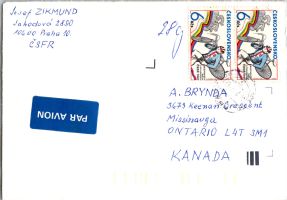 Josef ZIKMUND
Jahodová 2880
10600 Praha 10
ČSFR
28g
ČESKOSLOVENSKO
6
ČESKOSLOVENSKO
6
PAR AVION
A. BRYNDA
3679 Keenan Crescent
Missisauga
ONTARIO L4T 3M1
KANADA